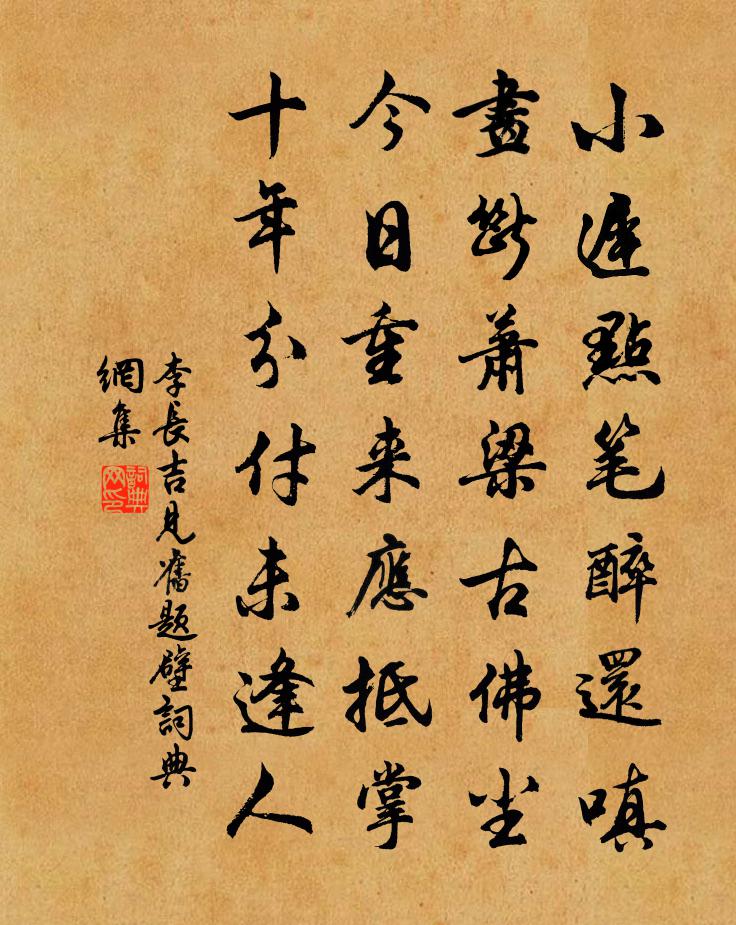 小遲點笔醉還嗔
畫斷蕭梁古佛尘
今日重来應抵掌
十年分付未逢人
李長吉見舊題壁詞典
網集
詞典
网印